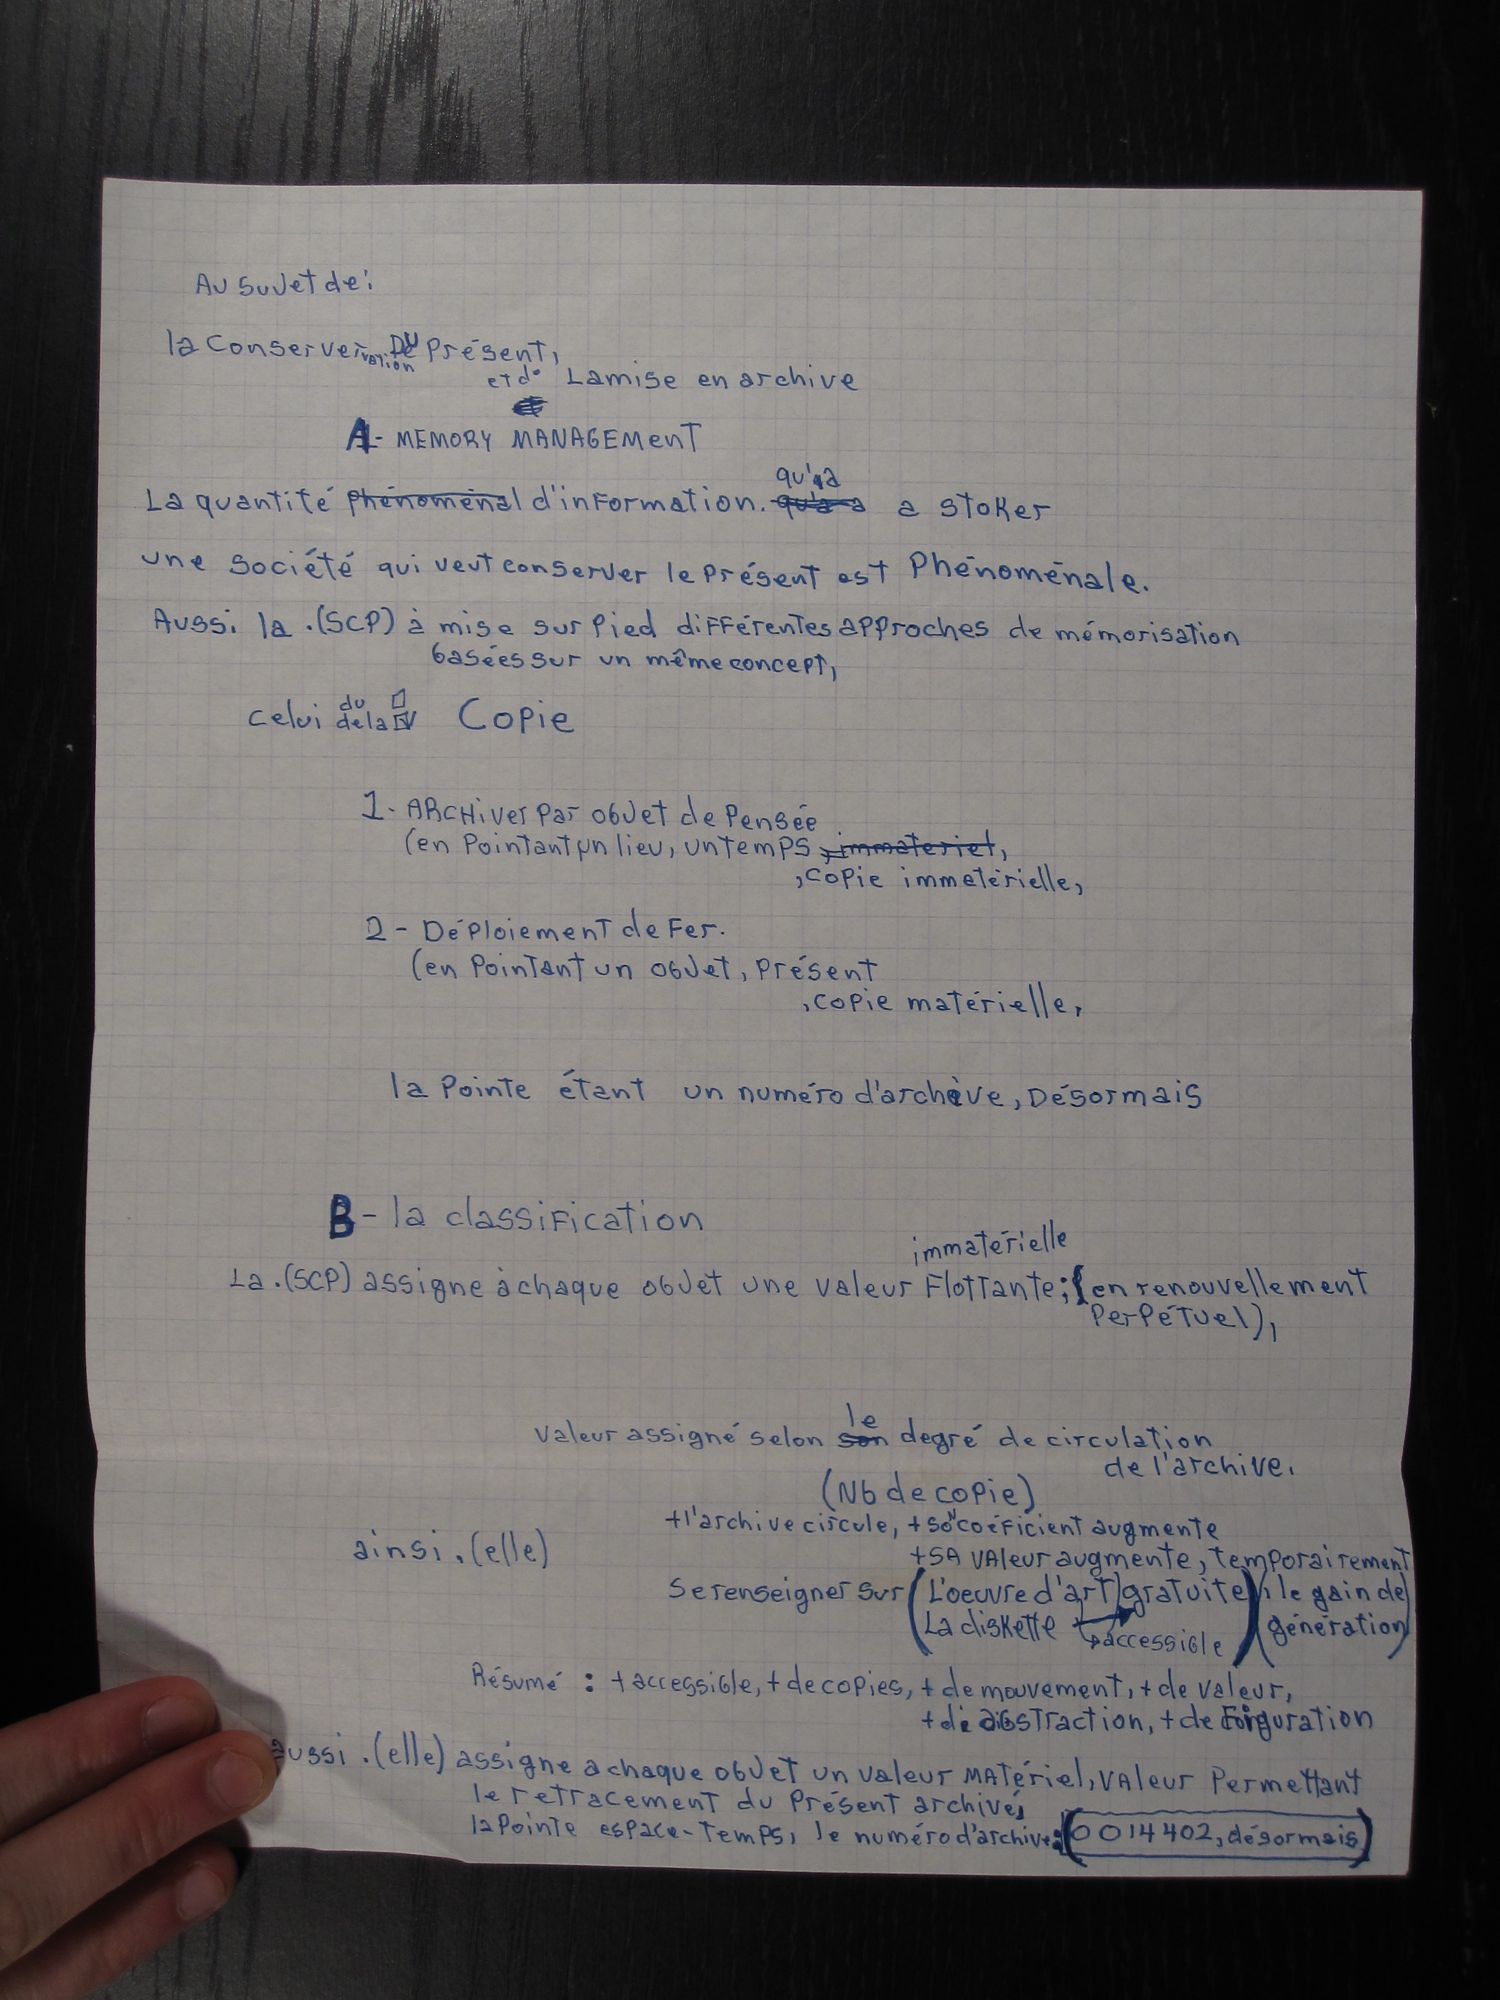 Au sujet de:
la Conservervation DU Présent,
et de La mise en archive
A- MEMORY MANAGEMENT
qu'a
La quantité phénoménal d'information. a stoker
une société qui veut conserver le présent est Phénoménale.
Aussi la .(SCP) à mise sur pied différentes approches de mémorisation
basées sur un même concept,
du
celui de la Copie
1- ARCHiver par objet de Pensée
(en Pointant un lieu, un temps, immateriel,
,copie immatérielle,
2- Déploiement de Fer.
(en Pointant un objet, présent
,copie matérielle,
la Pointe étant un numéro d'archive, Désormais
B- la classification
immatérielle
La .(SCP) assigne à chaque objet une valeur Flottante; (en renouvellement
perpétuel),
le
valeur assigné selon son degré de circulation
de l'archive.
(Nb de copie)
+ l'archive circule, + son coéficient augmente
ainsi .(elle)
+ SA VAleur augmente, temporairement
Se renseigner sur (L'oeuvre d'art gratuite), (le gain de
La diskette accessible génération)
Résumé : + accessible, + de copies, + de mouvement, + de valeur,
+ de abstraction, + de Figuration
aussi .(elle) assigne a chaque objet un valeur MAtériel, VAleur Permettant
le retracement du Présent archivé,
la Pointe espace-temps, le numéro d'archive: (0014402, désormais)